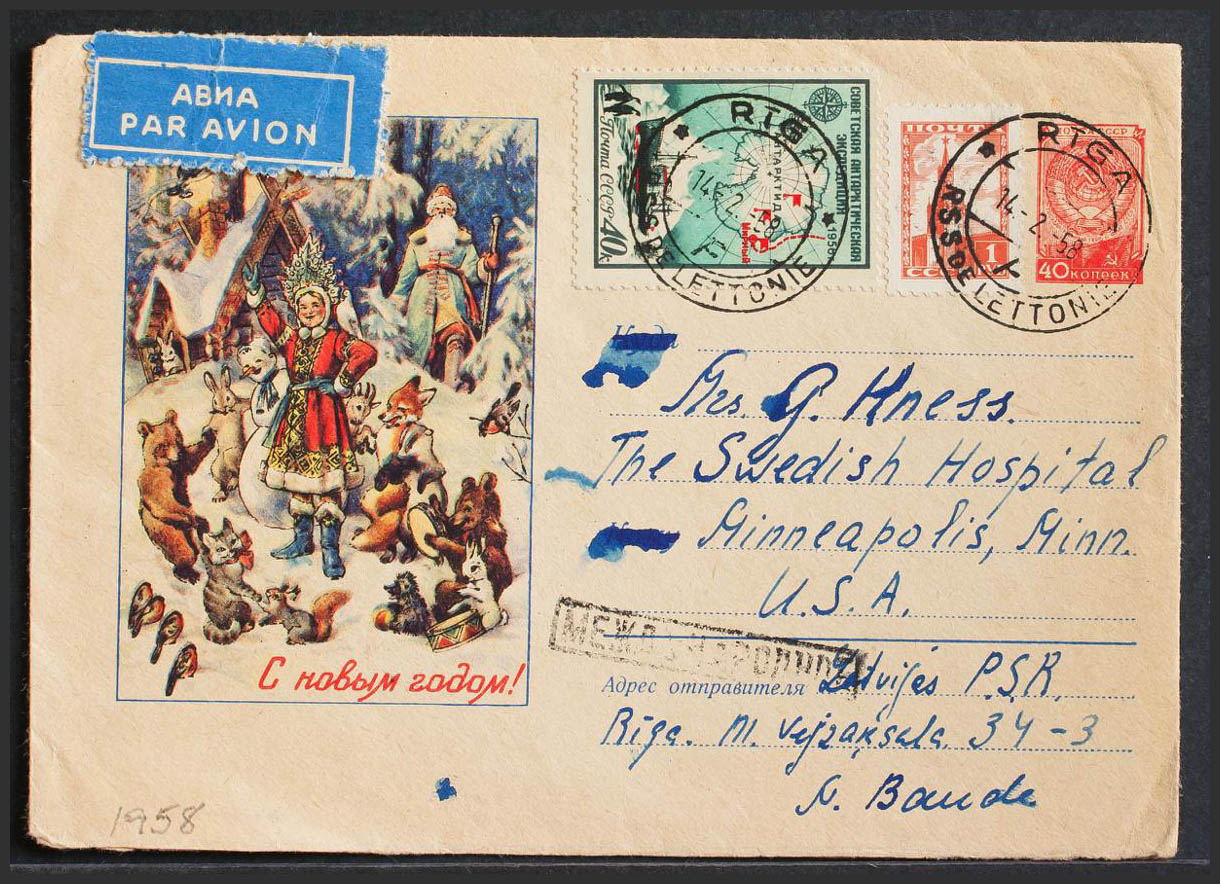 АВИА
PAR AVION
СОВЕТСКАЯ АНТАРКТИЧЕСКАЯ
ЭКСПЕДИЦИЯ
1958
Почта СССР 40к
АНТАРКТИДА
Мирный
RIGA
14-2-58
RSS DE LETTONIE
ПОЧТА
1
СССР
RIGA
14-2-58
RSS DE LETTONIE
ПОЧТА СССР
40 копеек
Куда
Mrs. G. Hness.
The Swedish Hospital
Minneapolis, Minn.
U.S.A.
С новым годом!
МЕЖДУНАРОДНОЕ
Адрес отправителя Latvijas P.S.R.
Rīga. M. Vejzaķsala 34-3
N. Bande
1958